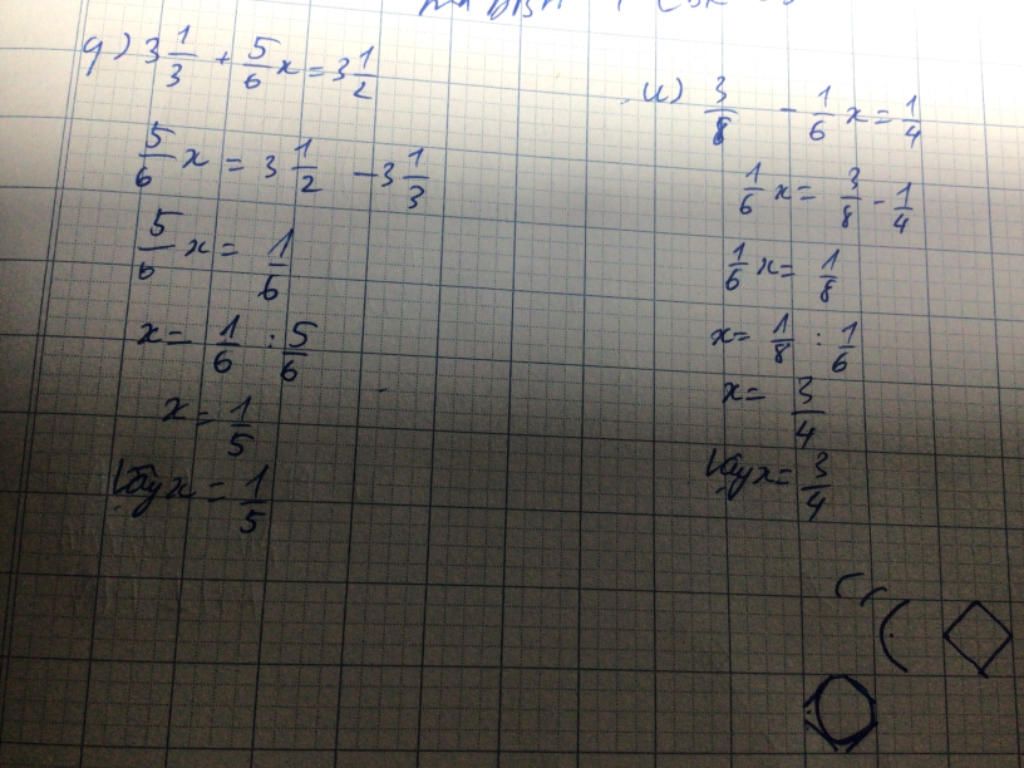 g) 3 1/3 + 5/6 x = 3 1/2
5/6 x = 3 1/2 - 3 1/3
5/6 x = 1/6
x = 1/6 : 5/6
x = 1/5
Vậy x = 1/5
u) 3/8 - 1/6 x = 1/4
1/6 x = 3/8 - 1/4
1/6 x = 1/8
x = 1/8 : 1/6
x = 3/4
Vậy x = 3/4